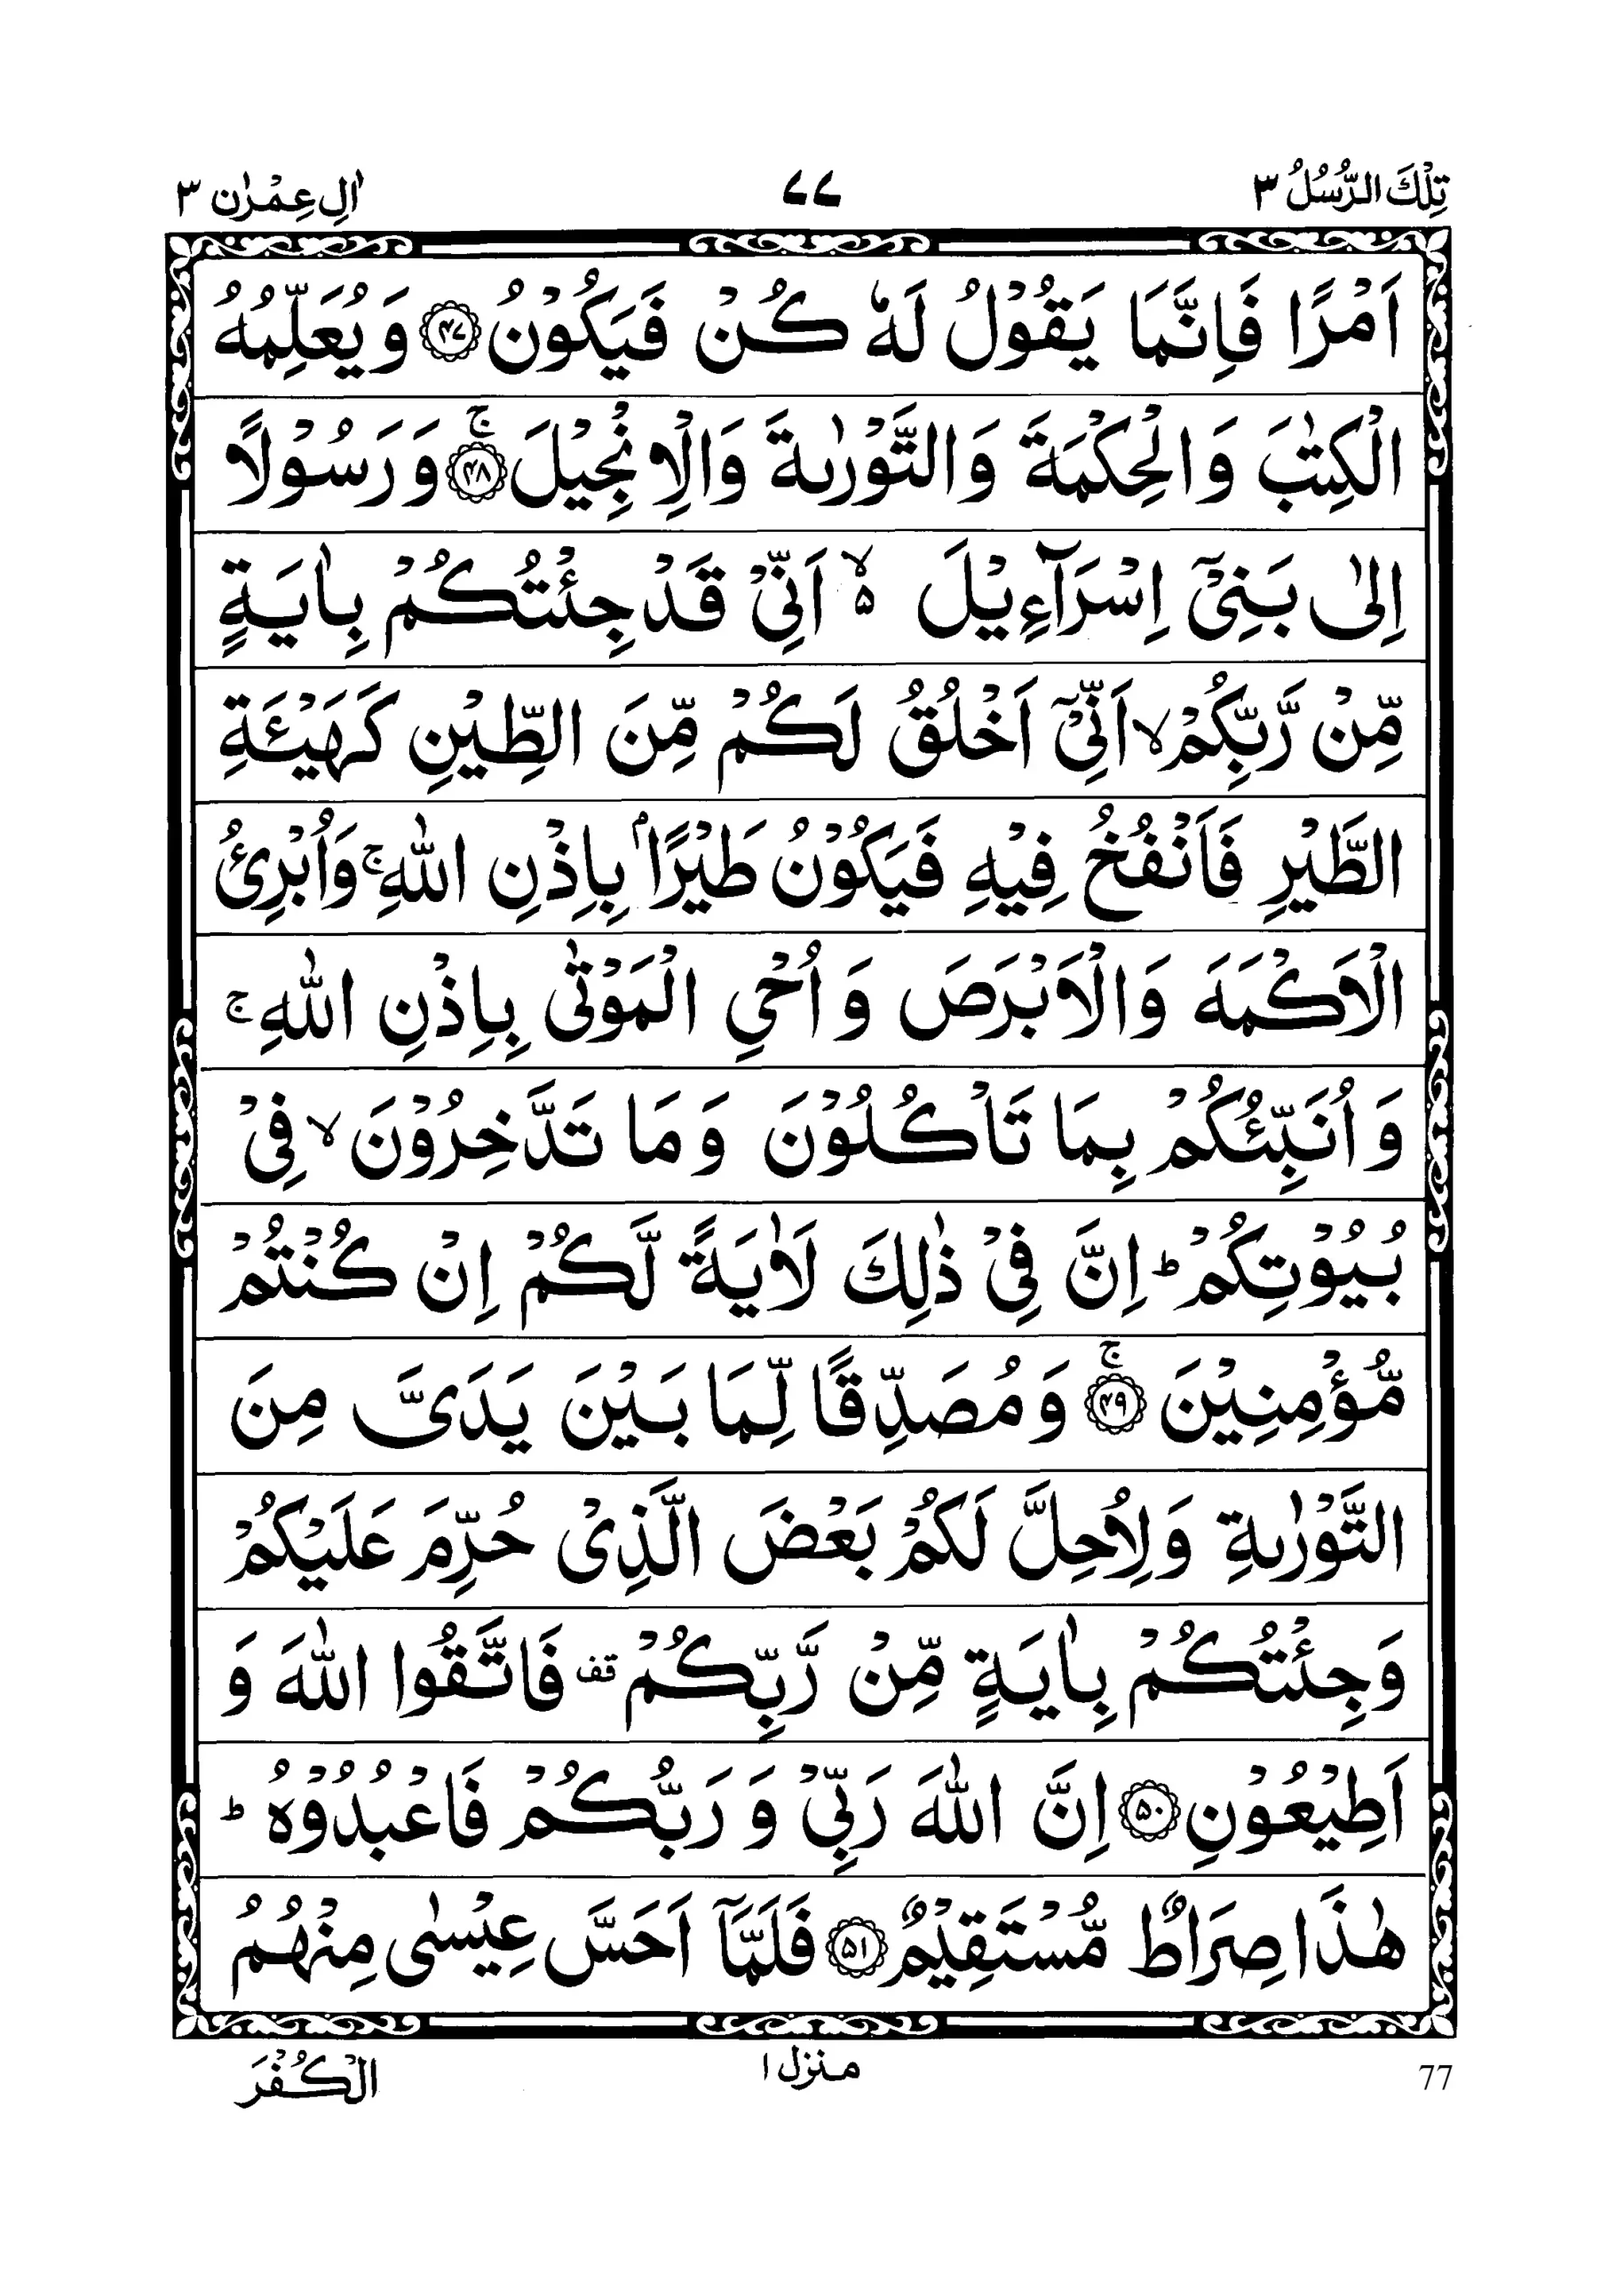 تِلْكَ الرُّسُلُ ٣
٧٧
اٰلِ عِمْرٰن ٣
اَمْرًا فَاِنَّمَا يَقُوْلُ لَهٗ كُنْ فَيَكُوْنُ ﴿۴۷﴾ وَيُعَلِّمُهُ
الْكِتٰبَ وَالْحِكْمَةَ وَالتَّوْرٰىةَ وَالْاِنْجِيْلَ ﴿۴۸﴾ۚ وَرَسُوْلًا
اِلٰى بَنِىْٓ اِسْرَآءِيْلَ ۙ۵ اَنِّىْ قَدْ جِئْتُكُمْ بِاٰيَةٍ
مِّنْ رَّبِّكُمْ ۙ اَنِّىْٓ اَخْلُقُ لَكُمْ مِّنَ الطِّيْنِ كَهَيْئَةِ
الطَّيْرِ فَاَنْفُخُ فِيْهِ فَيَكُوْنُ طَيْرًاۢ بِاِذْنِ اللّٰهِ ۚ وَاُبْرِئُ
الْاَكْمَهَ وَالْاَبْرَصَ وَاُحْىِ الْمَوْتٰى بِاِذْنِ اللّٰهِ ۚ
وَاُنَبِّئُكُمْ بِمَا تَاْكُلُوْنَ وَمَا تَدَّخِرُوْنَ ۙ فِىْ
بُيُوْتِكُمْ ؕ اِنَّ فِىْ ذٰلِكَ لَاٰيَةً لَّكُمْ اِنْ كُنْتُمْ
مُّؤْمِنِيْنَ ﴿۴۹﴾ۚ وَمُصَدِّقًا لِّمَا بَيْنَ يَدَىَّ مِنَ
التَّوْرٰىةِ وَلِاُحِلَّ لَكُمْ بَعْضَ الَّذِىْ حُرِّمَ عَلَيْكُمْ
وَجِئْتُكُمْ بِاٰيَةٍ مِّنْ رَّبِّكُمْ قف فَاتَّقُوا اللّٰهَ وَ
اَطِيْعُوْنِ ﴿۵۰﴾ اِنَّ اللّٰهَ رَبِّىْ وَرَبُّكُمْ فَاعْبُدُوْهُ ؕ
هٰذَا صِرَاطٌ مُّسْتَقِيْمٌ ﴿۵۱﴾ فَلَمَّآ اَحَسَّ عِيْسٰى مِنْهُمُ
الْكُفْرَ
منزل ١
77